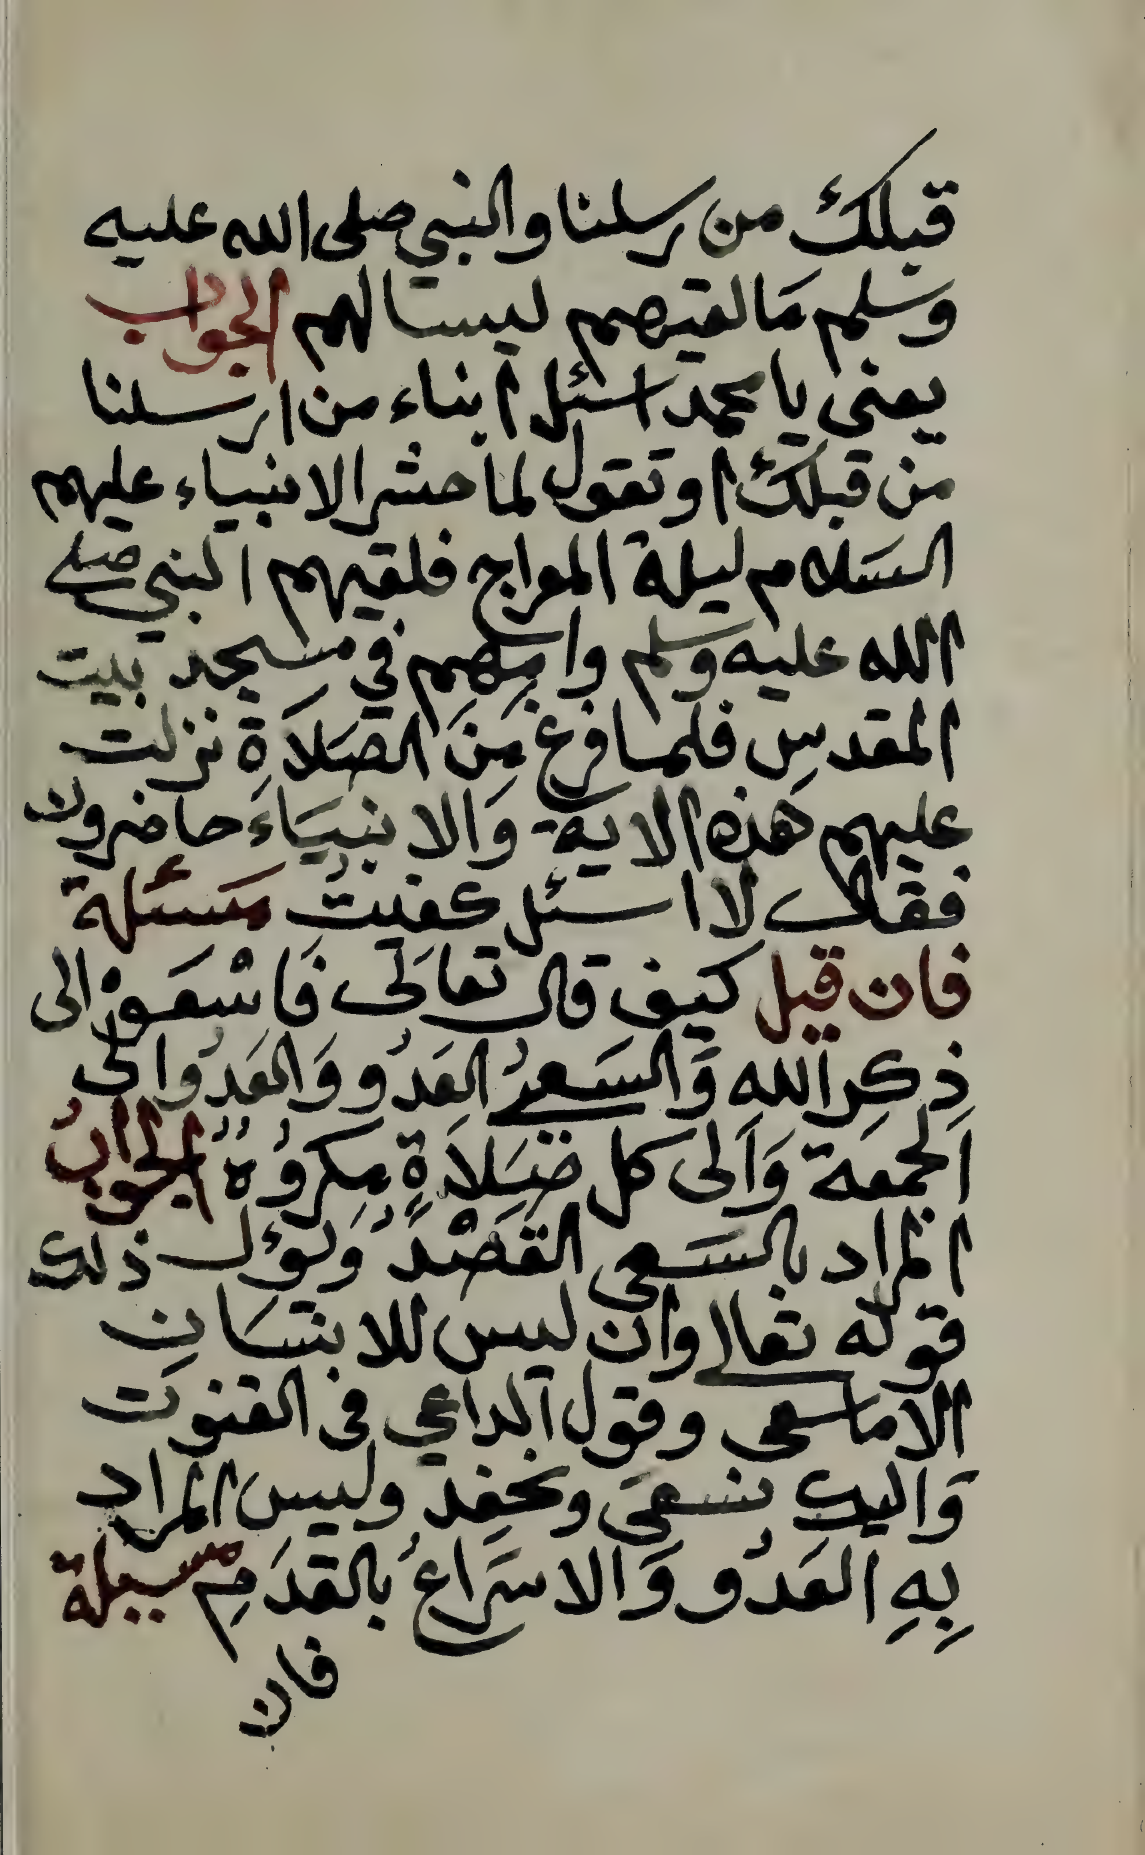 قبلك من رسلنا والنبي صلى الله عليه
وسلم مَا لقيهم ليسالهم الجواب
يعني يا محمد اسئل ابناء من ارسلنا
من قبلك او تقول لما حشر الانبياء عليهم
السَلام ليلة المعراج فلقيهم النبي صلى
الله عليه وسلم وامهم في مسجد بيت
المقدس فلما فرغ مِنَ الصَلاَةِ نزلت
عليهم هَذه الاية وَالانبيَاءَ حاضرون
فقال لا اسئل كفيتُ مَسئلة
فان قيل كيف قال تعالَى فَاسْعَوْا الى
ذِكرِ الله وَالسَعيُ العَدُو وَالعَدُو الَى
الجمعَة وَالى كل صَلاَةٍ مكروُهٌ الجوابُ
المراد بالسَعي القَصْدُ وَلؤل ذلك
قوله تعالى وان ليس للانسَانِ
الا ما سَعى وقول الداعي في القنوت
وَاليك نسعَى ونحفِد وليس المراد
بِهِ العَدُو وَالاسَراعُ بالقدَمِ مسيلة
فان